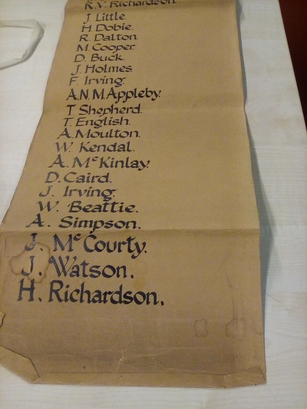 R.V. Richardson.
J. Little
H. Dobie.
R. Dalton.
M. Cooper.
D. Buck.
J. Holmes.
F. Irving.
A.N.M. Appleby.
T. Shepherd.
T. English.
A. Moulton.
W. Kendal.
A. McKinlay.
D. Caird.
J. Irving.
W. Beattie.
A. Simpson.
J. McCourty.
J. Watson.
H. Richardson.